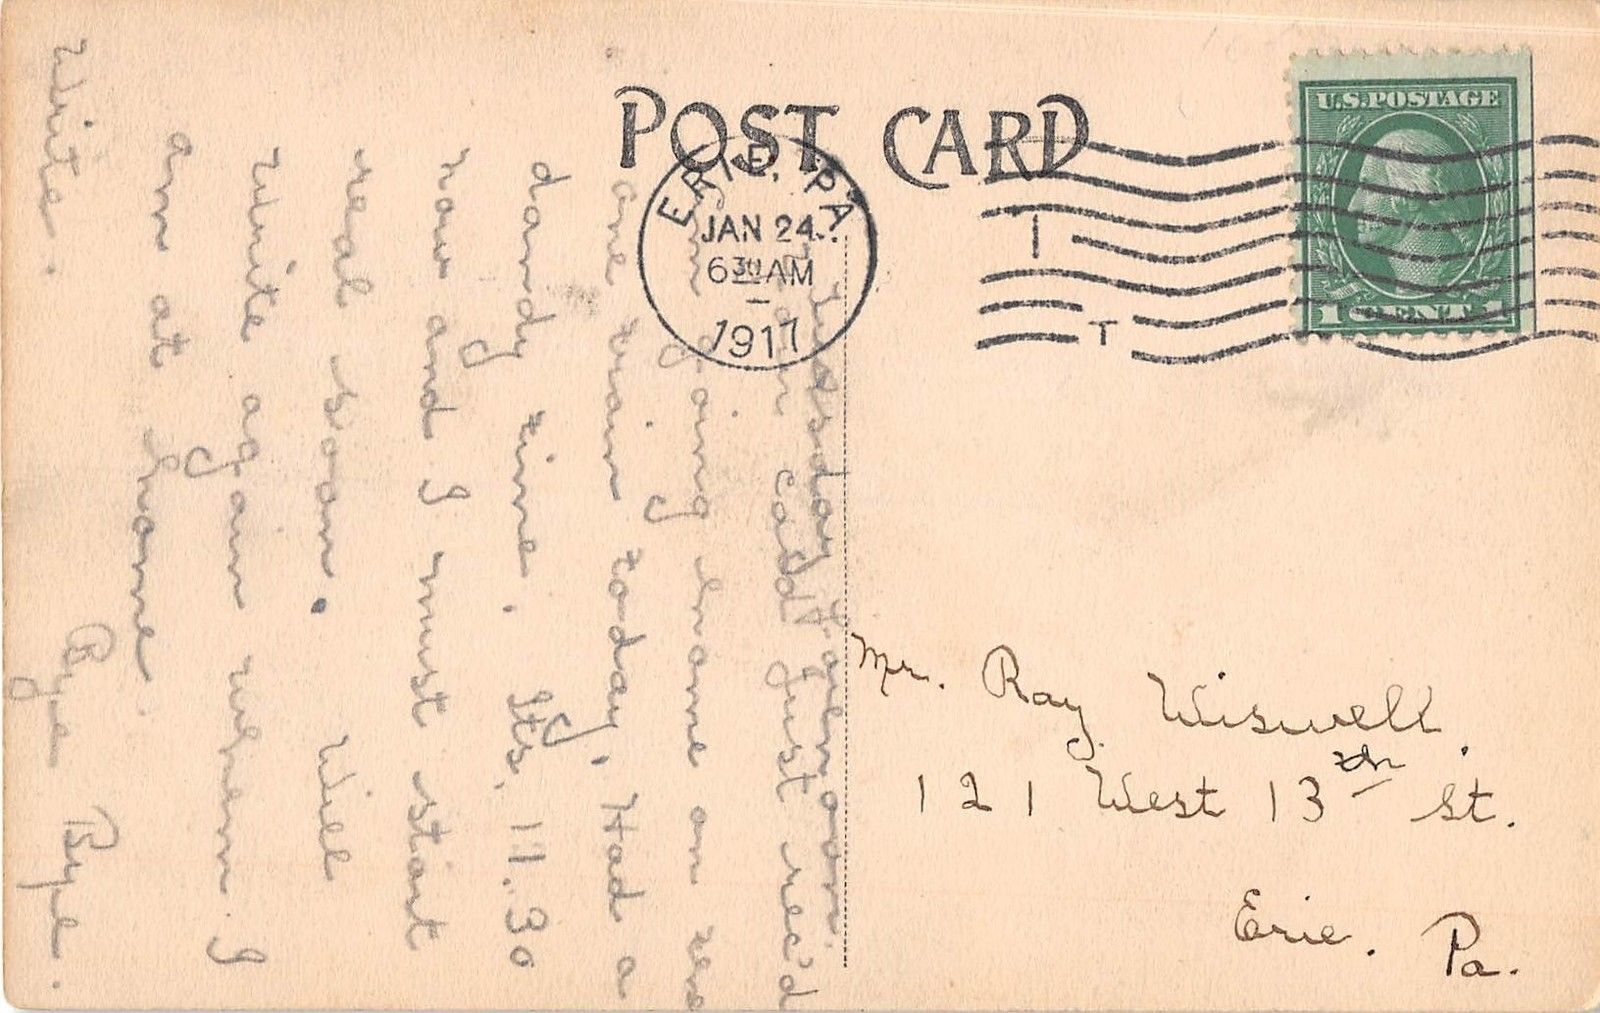 POST CARD
U.S. POSTAGE
1 CENT 1
ERIE, PA
JAN 24
6 30 AM
1917
I
T
Tuesday Forenoon.
Your card just rec'd
am going home on the
one train today, Had a
dandy time. Its, 11.30
now and I must start
real soon. Will
write again when I
am at home.
Write. Bye Bye.
Mr. Ray Wiswell.
121 West 13th St.
Erie. Pa.